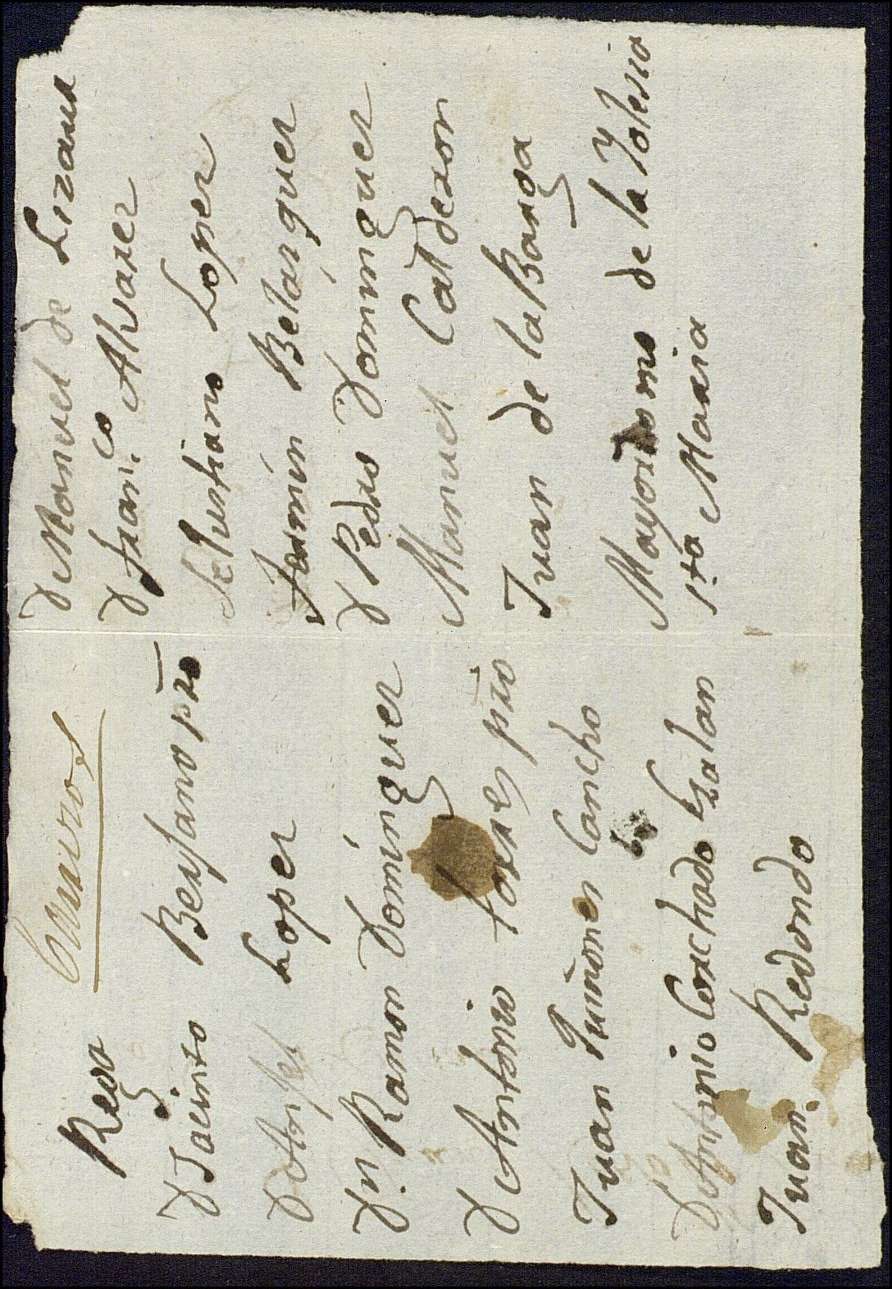 D Jacinto Bexjano pro
D Angel Lopez
Dn. Ramon Domínguez
D Antonio Torres pro
Juan Quiñones Cancho
D Antonio Corchado Galan
Juan Redondo
D Manuel de Lizaur
D Franco Alvarez
Selustiano Lopez
Fermin Belasquez
D Pedro Dominguez
Manuel Calderon
Juan de la Barga
Mayordomo de la Yglesia
Sta Maria